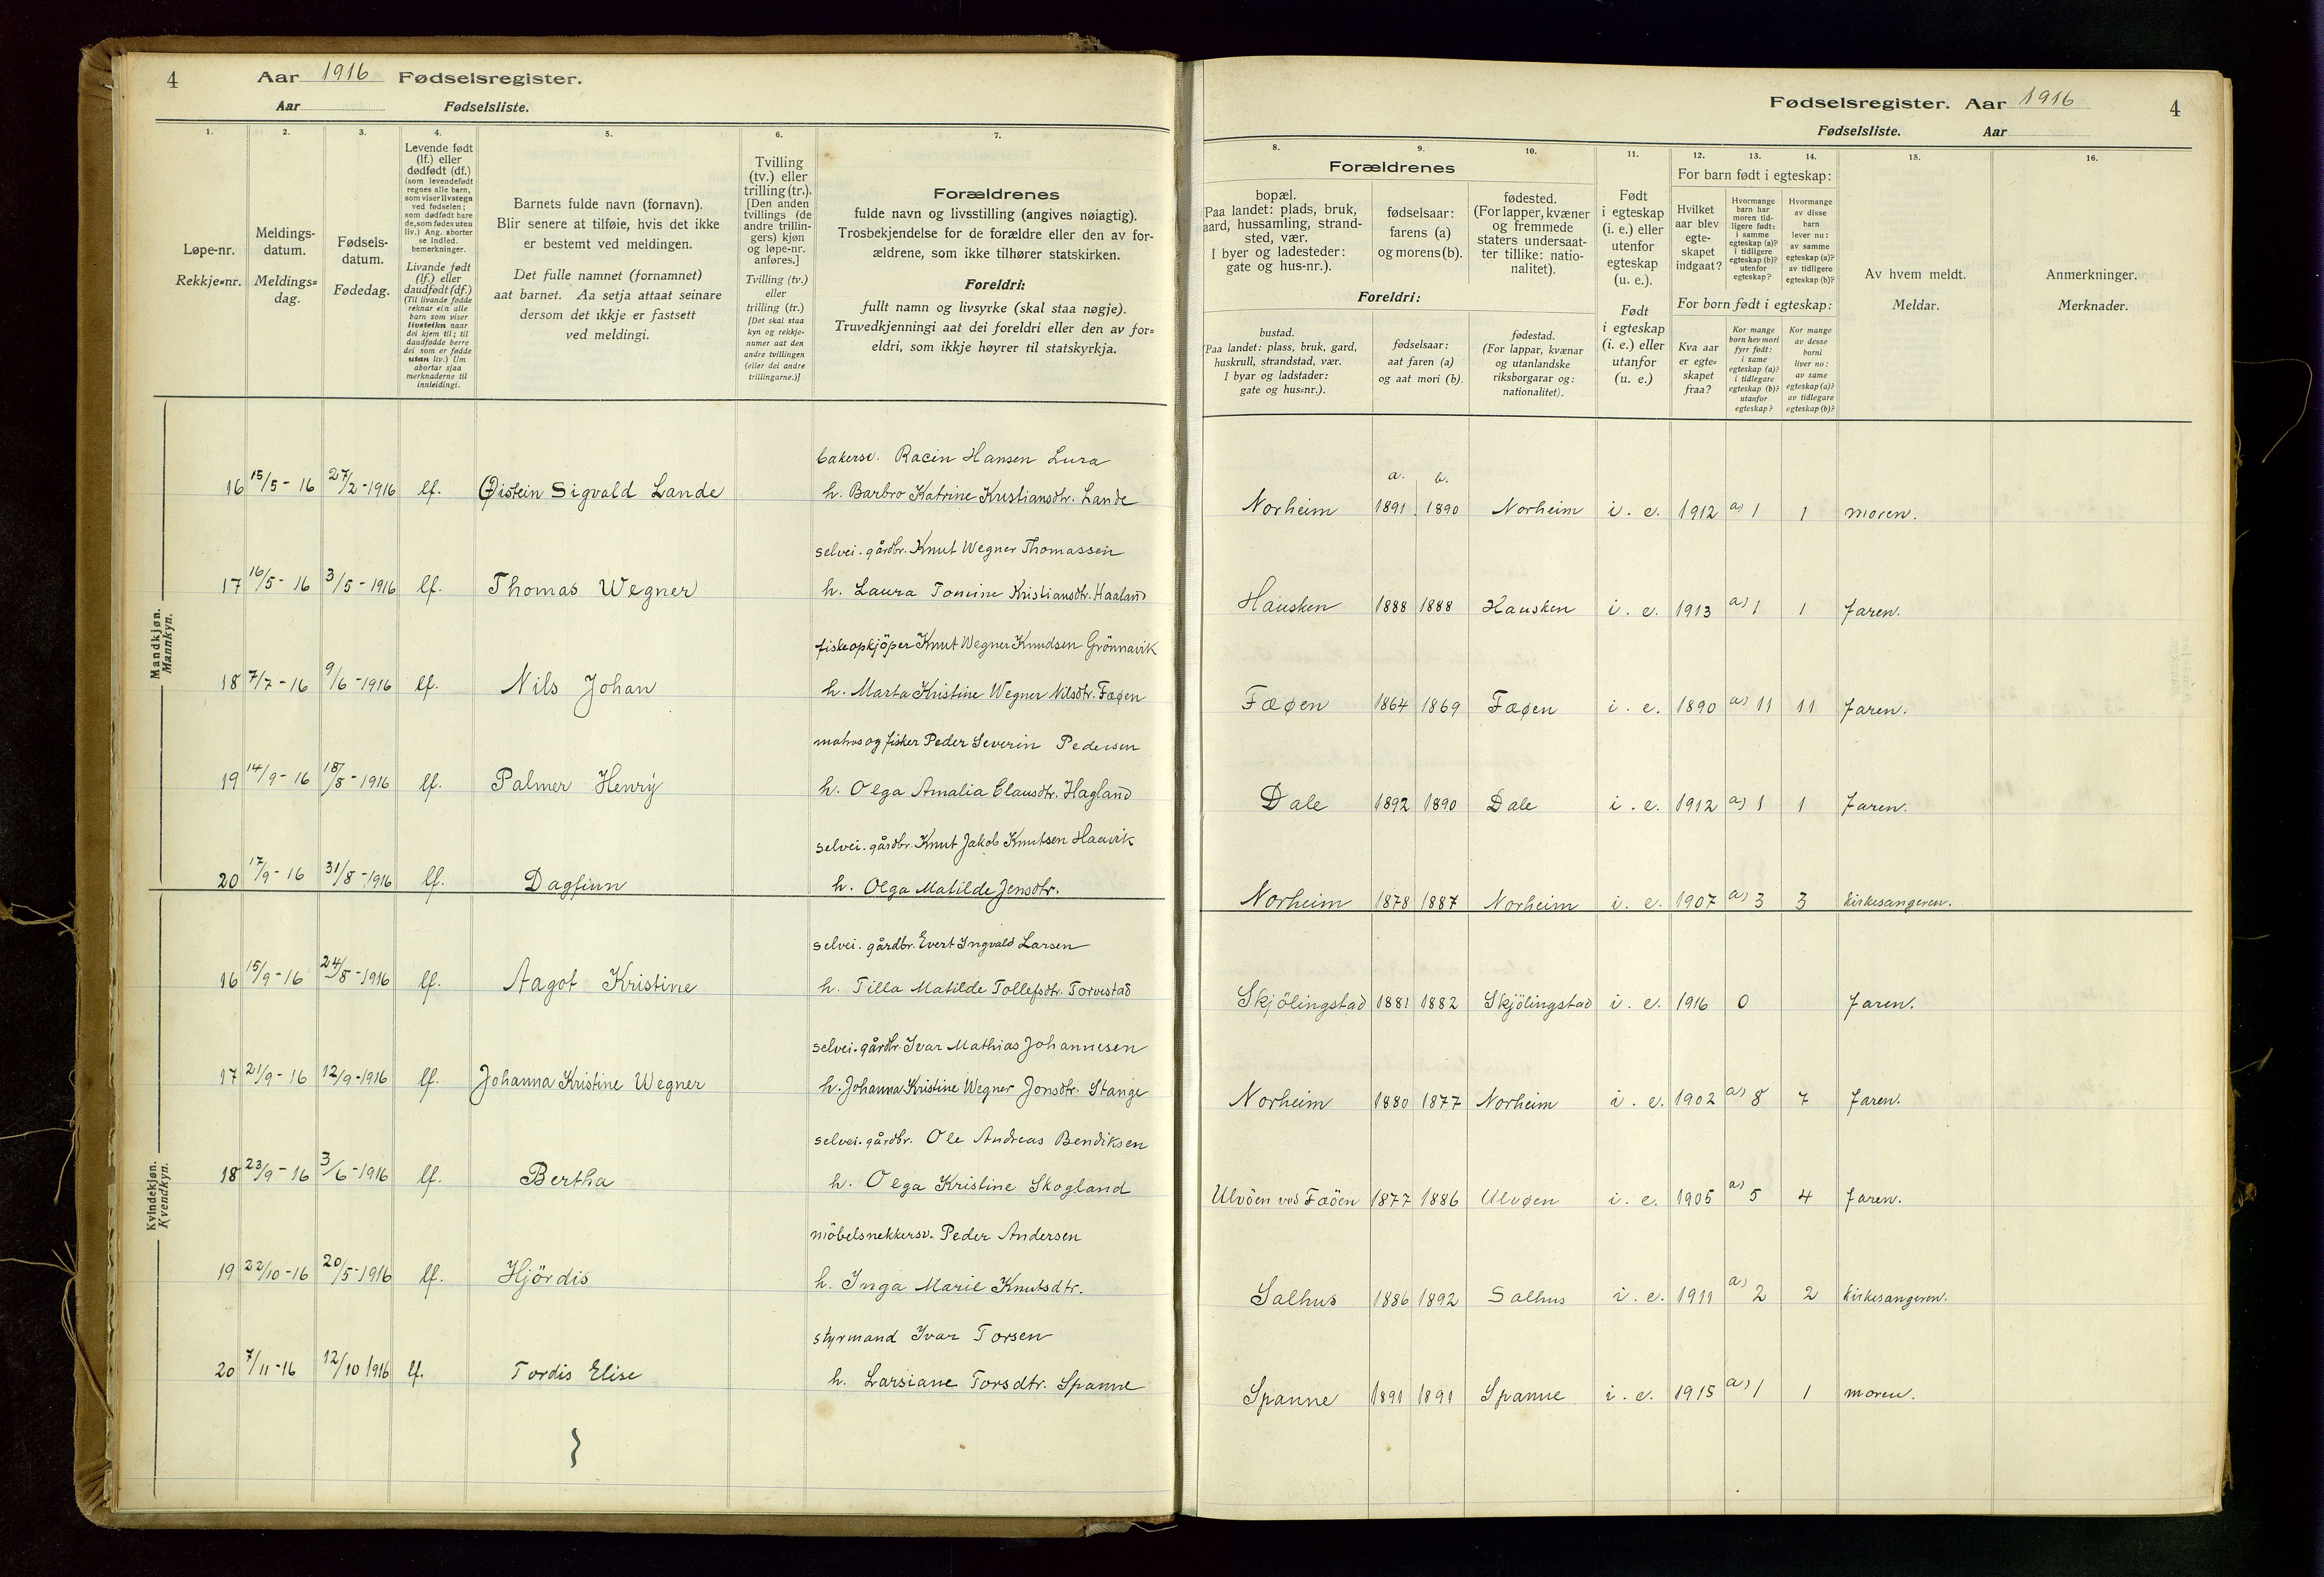 4 Aar 1916 Fødselsregister.
Aar Fødselsliste.
Fødselsregister. Aar 1916 4
Fødselsliste. Aar
1. 2. 3. 4. 5. 6. 7.
Løpe-nr.
Rekkje=nr.
Meldings-
datum.
Meldings=
dag.
Fødsels-
datum.
Fødedag.
Levende født
(lf.) eller
dødfødt (df.)
(som levendefødt
regnes alle barn,
som viser livstegn
ved fødselen;
som dødfødt bare
de, som fødes uten
liv.) Ang. aborter
se indled.
bemerkninger.
Livande født
(lf.) eller
daudfødt (df.)
(Til livande fødde
reknar ein alle
barn som viser
livsteikn naar
dei kjem til; til
daudfødde berre
dei som er fødde
utan liv.) Um
abortar sjaa
merknaderne til
innleidingi.
Barnets fulde navn (fornavn).
Blir senere at tilføie, hvis det ikke
er bestemt ved meldingen.
Det fulle namnet (fornamnet)
aat barnet. Aa setja attaat seinare
dersom det ikkje er fastsett
ved meldingi.
Tvilling
(tv.) eller
trilling (tr.).
[Den anden
tvillings (de
andre trillin-
gers) kjøn
og løpe-nr.
anføres.]
Tvilling (tv.)
eller
trilling (tr.)
[Det skal staa
kyn og rekkje-
numer aat den
andre tvillingen
(eller dei andre
trillingarne.)]
Forældrenes
fulde navn og livsstilling (angives nøiagtig).
Trosbekjendelse for de forældre eller den av for-
ældrene, som ikke tilhører statskirken.
Foreldri:
fullt namn og livsyrke (skal staa nøgje).
Truvedkjenningi aat dei foreldri eller den av for=
eldri, som ikkje høyrer til statskyrkja.
8. 9. 10. 11. 12. 13. 14. 15. 16.
Forældrenes
bopæl.
(Paa landet: plads, bruk,
gaard, hussamling, strand-
sted, vær.
I byer og ladesteder:
gate og hus-nr.).
fødselsaar:
farens (a)
og morens (b).
fødested.
(For lapper, kvæner
og fremmede
staters undersaat-
ter tillike: natio-
nalitet).
Foreldri:
bustad.
(Paa landet: plass, bruk, gard,
huskrull, strandstad, vær.
I byar og ladstader:
gate og hus=nr.).
fødselsaar:
aat faren (a)
og aat mori (b).
fødestad.
(For lappar, kvænar
og utanlandske
riksborgarar og:
nationalitet).
Født
i egteskap
(i. e.) eller
utenfor
egteskap
(u. e.).
Født
i egteskap
(i. e.) eller
utanfor
(u. e.)
For barn født i egteskap:
Hvilket
aar blev
egte-
skapet
indgaat?
Hvormange
barn har
moren tid-
ligere født:
i samme
egteskap (a)?
i tidligere
egteskap (b)?
utenfor
egteskap?
Hvormange
av disse
barn
lever nu:
av samme
egteskap (a)?
av tidligere
egteskap (b)?
For born født i egteskap:
Kva aar
er egte=
skapet
fraa?
Kor mange
born hev mori
fyrr født:
i same
egteskap (a)?
i tidlegare
egteskap (b)?
utanfor
egteskap?
Kor mange
av desse
borni
liver no:
av same
egteskap (a)?
av tidlegare
egteskap (b)?
Av hvem meldt.
Meldar.
Anmerkninger.
Merknader.
Mandkjøn.
Mannkyn.
bakersv. Racin Hansen Lura
a. b.
16 15/5 - 16 27/2 - 1916 lf. Øistein Sigvald Lande h. Barbro Katrine Kristiansdtr. Lande Norheim 1891 1890 Norheim i. e. 1912 a) 1 1 moren.
selvei. gårdbr. Knut Wegner Thomassen
17 16/5 - 16 3/5 - 1916 lf. Thomas Wegner h. Laura Tomine Kristiansdtr. Haaland Hausken 1888 1888 Hausken i. e. 1913 a) 1 1 faren.
fiskeopkjöper Knut Wegner Knudsen Grönnavik
18 7/7 - 16 9/6 - 1916 lf. Nils Johan h. Marta Kristine Wegner Nilsdtr. Fæøen Fæøen 1864 1869 Fæøen i. e. 1890 a) 11 11 faren.
matros og fisker Peder Severin Pedersen
19 14/9 - 16 18/8 - 1916 lf. Palmer Henry h. Olga Amalia Clausdtr. Hagland Dale 1892 1890 Dale i. e. 1912 a) 1 1 faren.
selvei. gårdbr. Knut Jakob Knutsen Haavik
20 17/9 - 16 31/8 - 1916 lf. Dagfinn h. Olga Matilde Jensdtr. Norheim 1878 1887 Norheim i. e. 1907 a) 3 3 kirkesangeren.
Kvindekjøn.
Kvendkyn.
selvei. gårdbr. Evert Ingvald Larsen
16 15/9 - 16 24/8 - 1916 lf. Aagot Kristine h. Tilla Matilde Tollefsdtr. Torvestad Skjölingstad 1881 1882 Skjölingstad i. e. 1916 0 faren.
selvei. gårdbr. Ivar Mathias Johannesen
17 21/9 - 16 12/9 - 1916 lf. Johanna Kristine Wegner h. Johanna Kristine Wegner Jonsdtr. Stange Norheim 1880 1877 Norheim i. e. 1902 a) 8 7 faren.
selvei. gårdbr. Ole Andreas Bendiksen
18 23/9 - 16 3/6 - 1916 lf. Bertha h. Olga Kristine Skogland Ulvöen ved Fæöen 1877 1886 Ulvøen i. e. 1905 a) 5 4 faren.
möbelsnekkersv. Peder Andersen
19 22/10 - 16 20/5 - 1916 lf. Hjördis h. Inga Marie Knutsdtr. Salhus 1886 1892 Salhus i. e. 1911 a) 2 2 kirkesangeren.
styrmand Ivar Torsen
20 7/11 - 16 12/10 1916 lf. Tordis Elise h. Larsiane Torsdtr. Spanne Spanne 1891 1891 Spanne i. e. 1915 a) 1 1 moren.